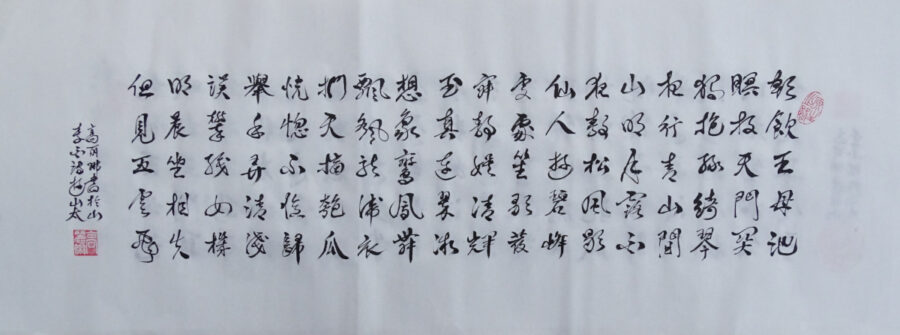 朝飲王母池
暝投天門關
獨抱綠綺琴
夜行青山間
山明月露白
夜靜松風歇
仙人遊碧峰
處處笙歌發
寂靜娛清輝
玉真連翠微
想象鸞鳳舞
飄颻龍虎衣
捫天摘匏瓜
恍惚不憶歸
舉手弄清淺
誤攀織女機
明晨坐相失
但見五雲飛
高書於山
李白詩遊山太